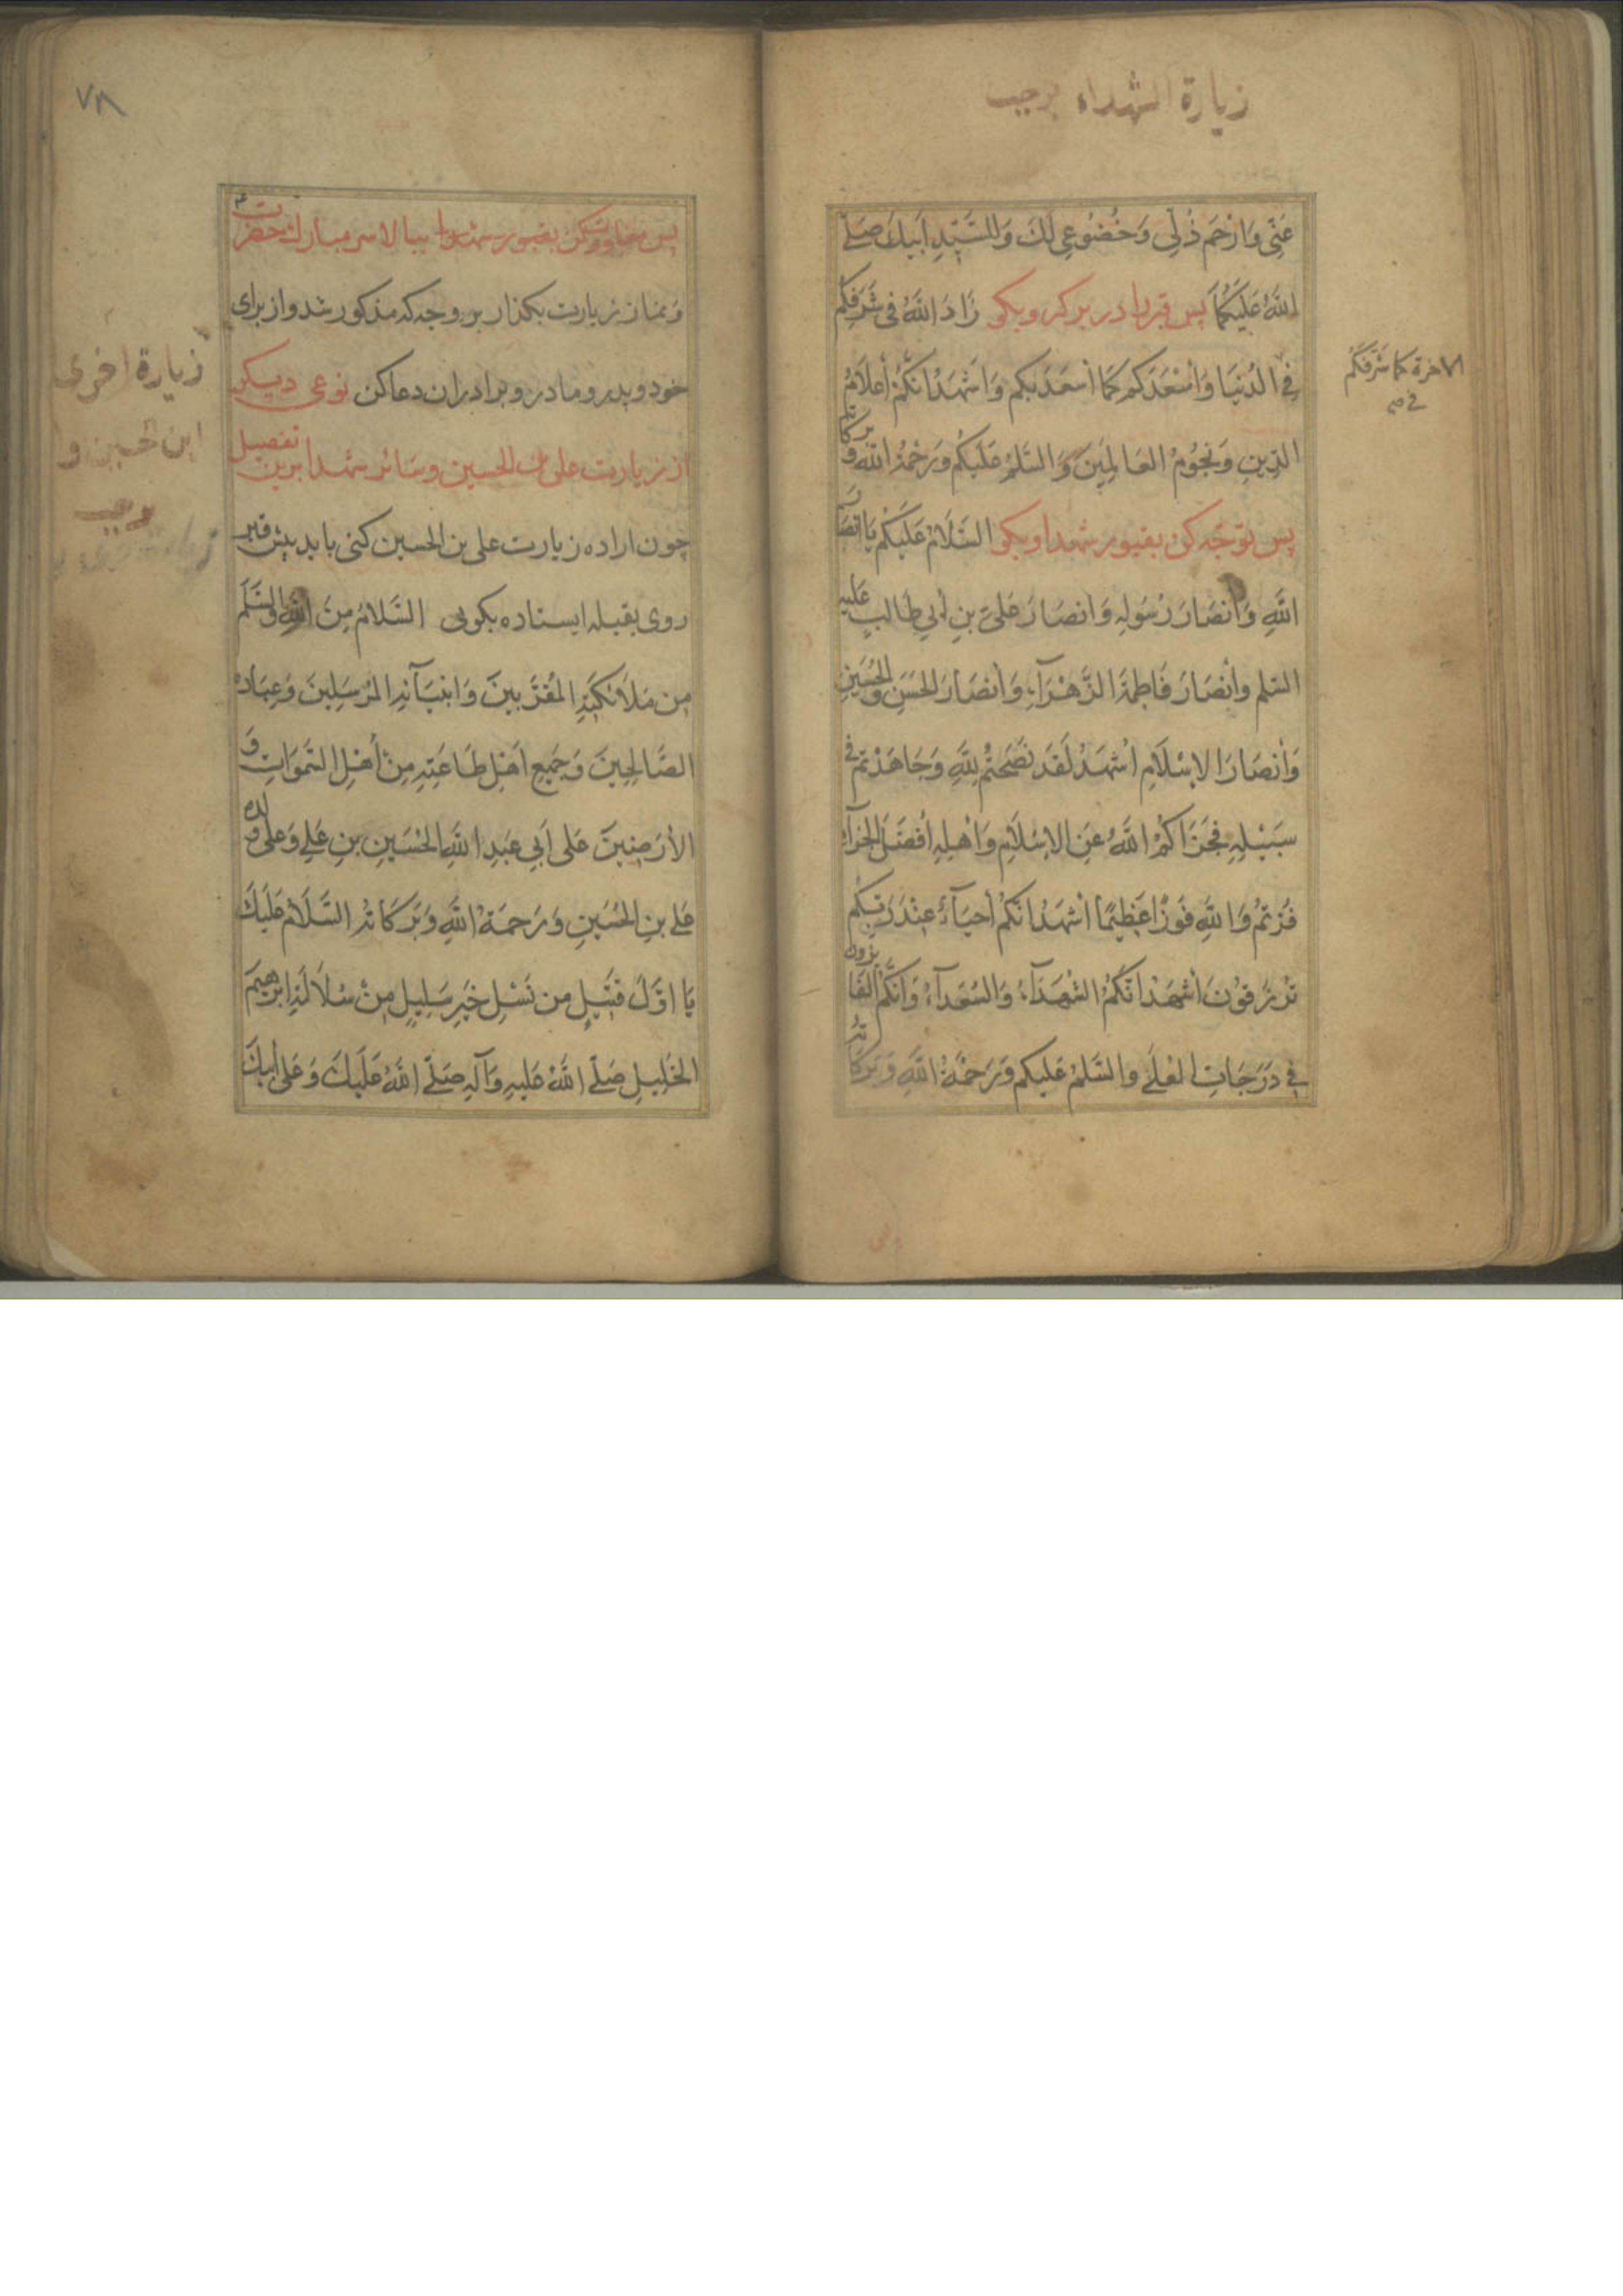 زيارة الشهداء برجب
عَنّی وَارْحَم ذُلّی وَخُضُوعی لَكَ وَلِلسَّيِّدِ اَبيكَ صَلَّی
اللهُ عَلَيْكُمَا پس قبر را در بر گیر و بگو زَادَ اللهُ فی شَرَفِكُم
الاخرة كما شَرَّفَكُم
فی صح
فِی الدُنيَا وَاَسْعَدَكُم كَمَا اَسعَدَ بِكُم وَاَشهَدُ اَنَّكُمْ اَعلَامُ
الدّينِ وَنُجُومُ العَالَمينَ وَالسَّلمُ عَلَيكُم وَرَحمَةُ اللهِ وَبركاته
پس توجه کن بقبور شهدا و بگو السَّلَامُ عَلَيكُم يَا اَنصَارَ
اللهِ وَاَنصَارَ رَسُولِهِ وَاَنصَارَ عَلیِّ بنِ اَبی طَالبٍ عليه
السّلم وَاَنْصَارَ فَاطِمَةَ الزَّهْرَآءِ وَاَنصَارَ الحَسَنِ وَالحُسَينِ
وَاَنصَارَ الاِسْلَامِ اَشهَدُ لَقَد نَصَحتُم لِلّهِ وَجَاهَدْتُم فی
سَبيْلِهِ فَجَزَاكُمُ اللهُ عَنِ الاِسْلَامِ وَاَهْلِهِ اَفضَلَ الجَزآءِ
فُزتُم وَاللهِ فَوزًا عَظيمًا اَشهَدُ اَنَّكُم اَحيَآءٌ عِنْدَ رَبِّكُم
تُرْزَقُونَ اَشهَدُ اَنَّكُمُ الشُّهَدَآءُ وَالسُّعَدَآءُ وَاَنَّكُمُ الفَائزون
فی دَرَجَاتِ العُلَی وَالسَّلمُ عَلَيكُم وَرَحمَةُ اللهِ وَبَرَكَاتُه
٧٨
پس معاودت کن بقبور شهدا بیا بالا سر مبارك حضرت ع
و نماز زیارت بگذار بر وجه که مذکور شد و از برای
خود و پدر و مادر و برادران دعا کن نوعی دیگر
زيارة اخرى
از زیارت علی بن الحسین و سائر شهدا برین تفصیل
ابن حسین و
چون اراده زیارت علی بن الحسین کنی باید پیش قبر
روی بقبله ایستاده بگویی السَّلَامُ مِنَ اللهِ وَالسَّلَم
مِن مَلآئِكَتِهِ المُقَرَّبينَ وَاَنبيَآئِهِ المُرْسَلينَ وَعِبَادِه
الصَّالِحينَ وَجَميعِ اَهْلِ طَاعَتِهِ مِنْ اَهْلِ السَّمَوَاتِ وَ
الاَرَضينَ عَلَی اَبی عَبدِ اللهِ الحُسَينِ بنِ عَلی وَعَلی ولده
عَلی بنِ الحُسَينِ وَرَحمَةُ اللهِ وَبَرَكَاتُهُ السَّلَامُ عَلَيكَ
يَا اَوَّلَ قَتيلٍ مِن نَسْلِ خَيرِ سَليلٍ مِنْ سُلَالَةِ اِبرهيمَ
الخَليلِ صَلَّی اللهُ عَليهِ وَآلِهِ صَلَّی اللهُ عَلَيكَ وَعَلی اَبيكَ